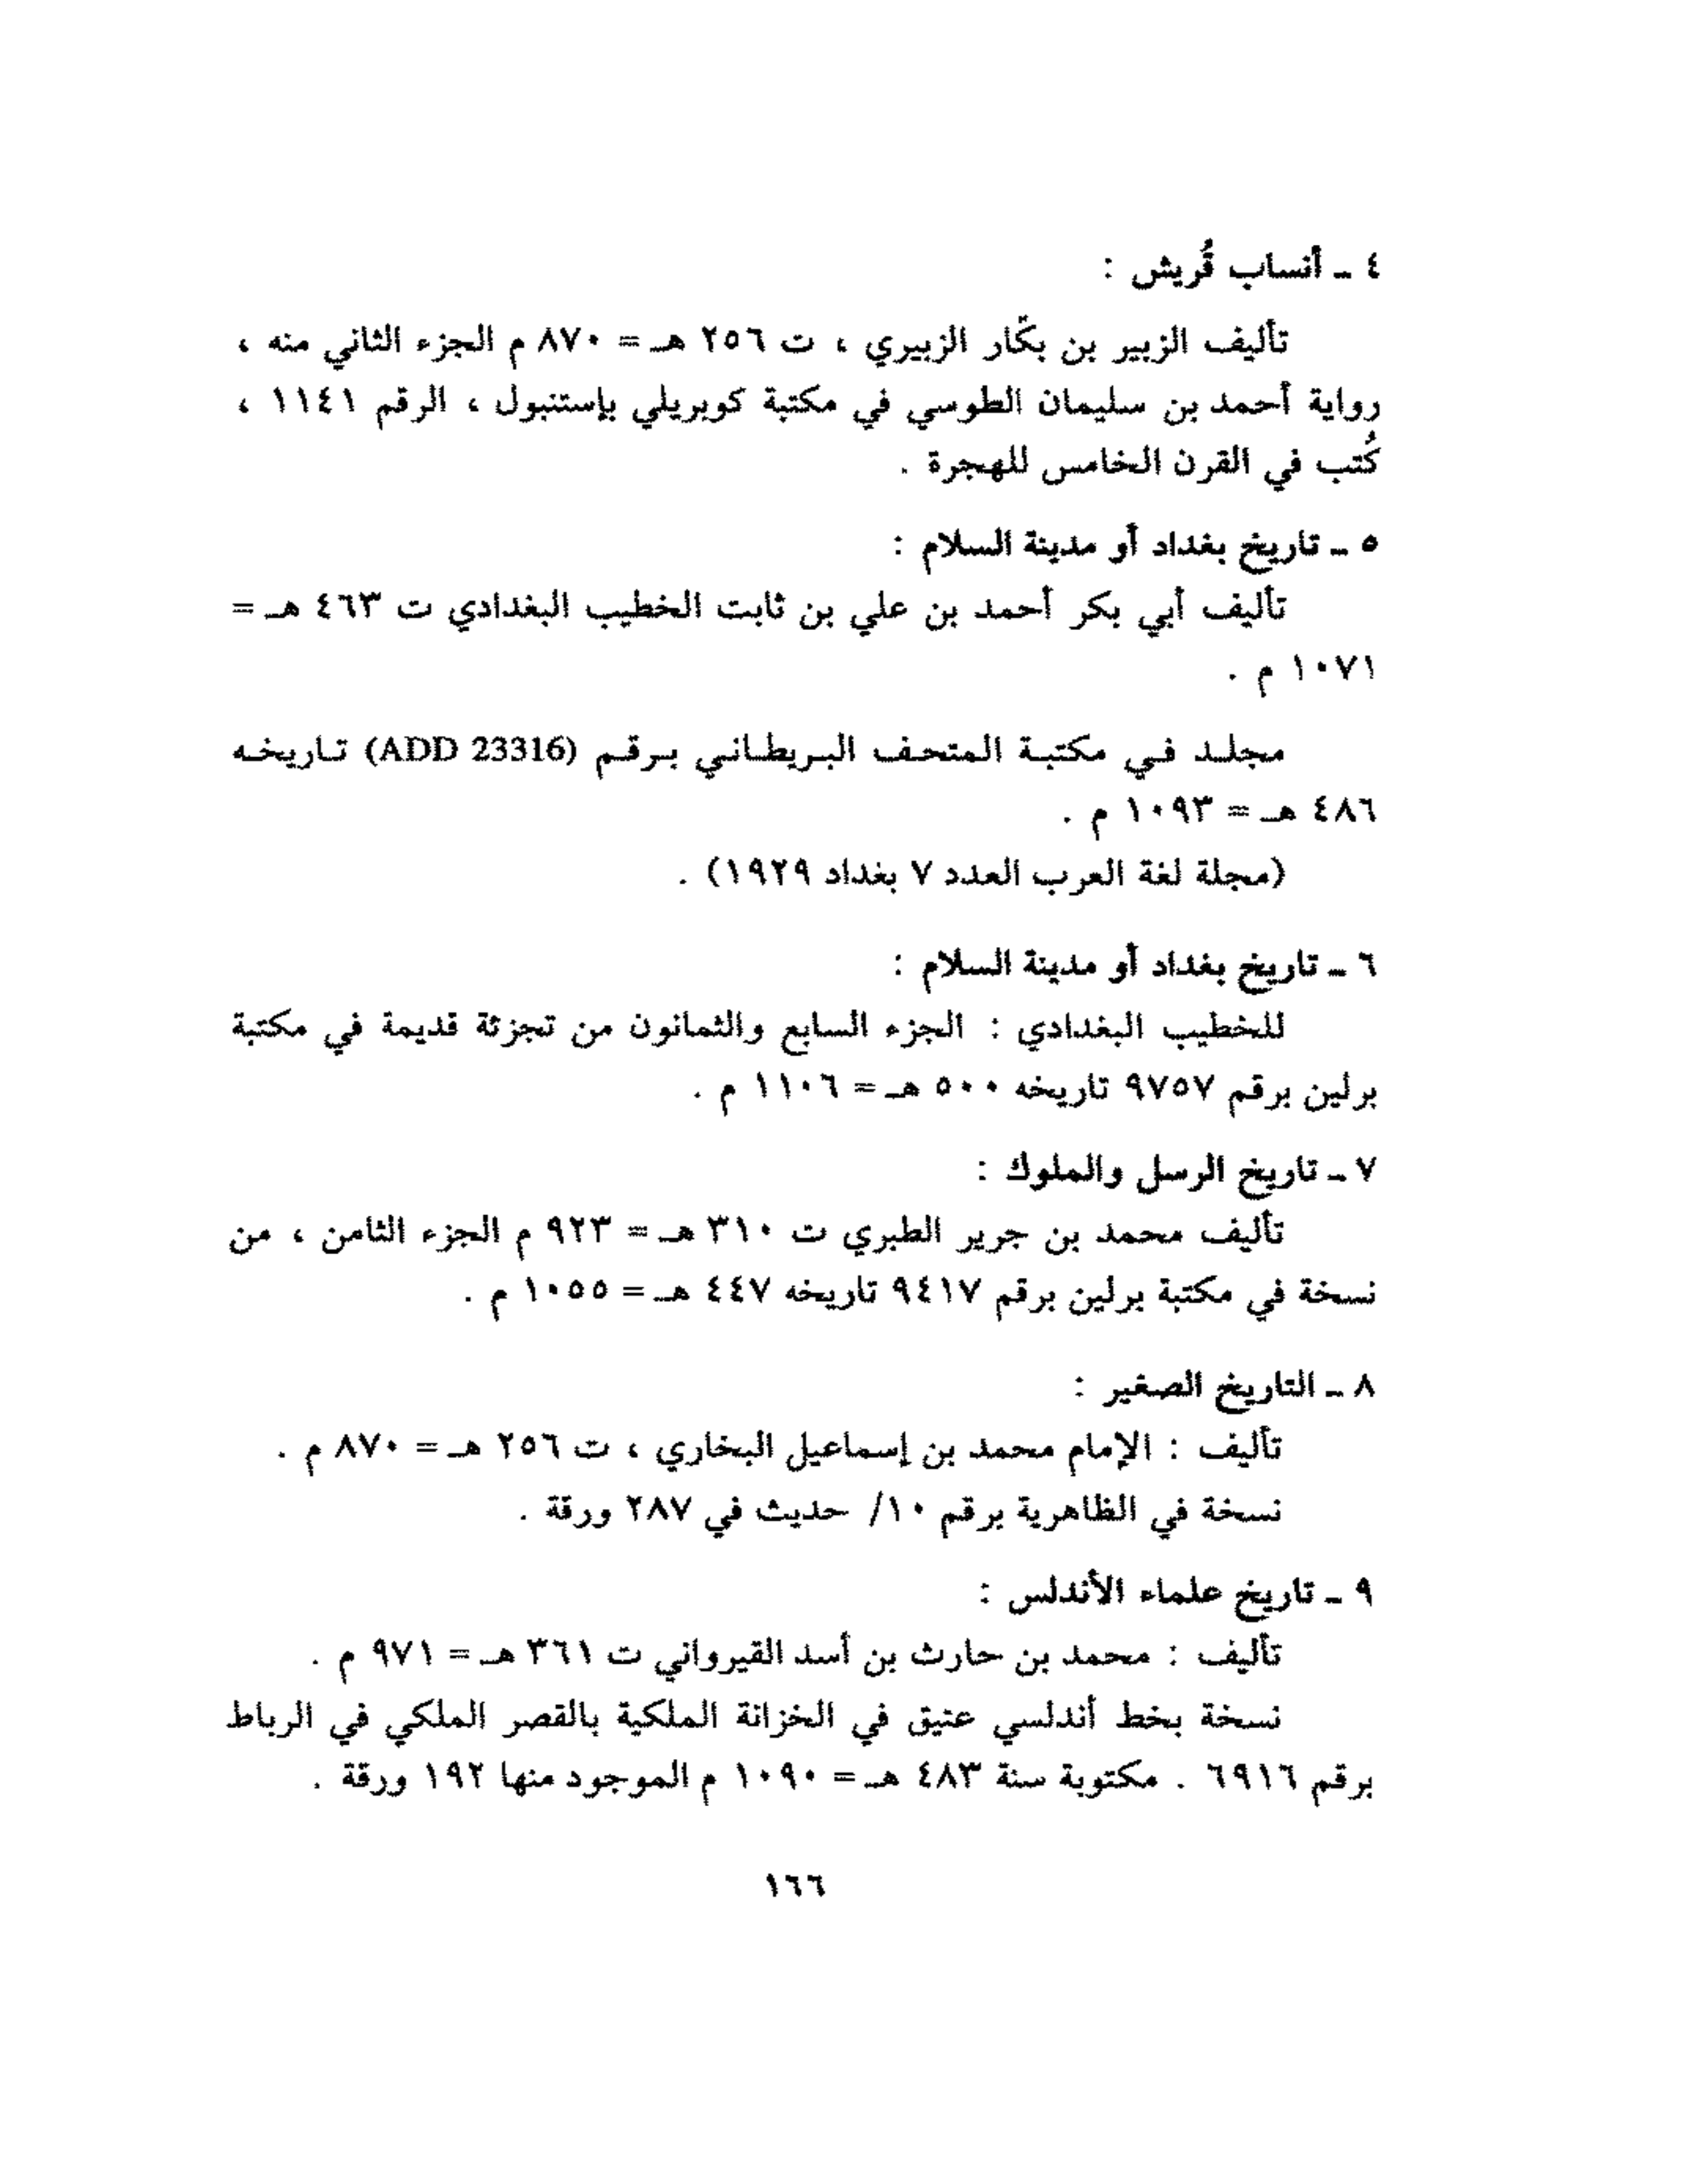 ٤ ـ أنساب قُريش :
تأليف الزبير بن بكّار الزبيري ، ت ٢٥٦ هـ = ٨٧٠ م الجزء الثاني منه ،
رواية أحمد بن سليمان الطوسي في مكتبة كوبريلي بإستنبول ، الرقم ١١٤١ ،
كُتب في القرن الخامس للهجرة .
٥ ـ تاريخ بغداد أو مدينة السلام :
تأليف أبي بكر أحمد بن علي بن ثابت الخطيب البغدادي ت ٤٦٣ هـ =
١٠٧١ م .
مجلد في مكتبة المتحف البريطاني برقم (ADD 23316) تاريخه
٤٨٦ هـ = ١٠٩٣ م .
(مجلة لغة العرب العدد ٧ بغداد ١٩٢٩) .
٦ ـ تاريخ بغداد أو مدينة السلام :
للخطيب البغدادي : الجزء السابع والثمانون من تجزئة قديمة في مكتبة
برلين برقم ٩٧٥٧ تاريخه ٥٠٠ هـ = ١١٠٦ م .
٧ ـ تاريخ الرسل والملوك :
تأليف محمد بن جرير الطبري ت ٣١٠ هـ = ٩٢٣ م الجزء الثامن ، من
نسخة في مكتبة برلين برقم ٩٤١٧ تاريخه ٤٤٧ هـ = ١٠٥٥ م .
٨ ـ التاريخ الصغير :
تأليف : الإمام محمد بن إسماعيل البخاري ، ت ٢٥٦ هـ = ٨٧٠ م .
نسخة في الظاهرية برقم ١٠/ حديث في ٢٨٧ ورقة .
٩ ـ تاريخ علماء الأندلس :
تأليف : محمد بن حارث بن أسد القيرواني ت ٣٦١ هـ = ٩٧١ م .
نسخة بخط أندلسي عتيق في الخزانة الملكية بالقصر الملكي في الرباط
برقم ٦٩١٦ . مكتوبة سنة ٤٨٣ هـ = ١٠٩٠ م الموجود منها ١٩٢ ورقة .
١٦٦